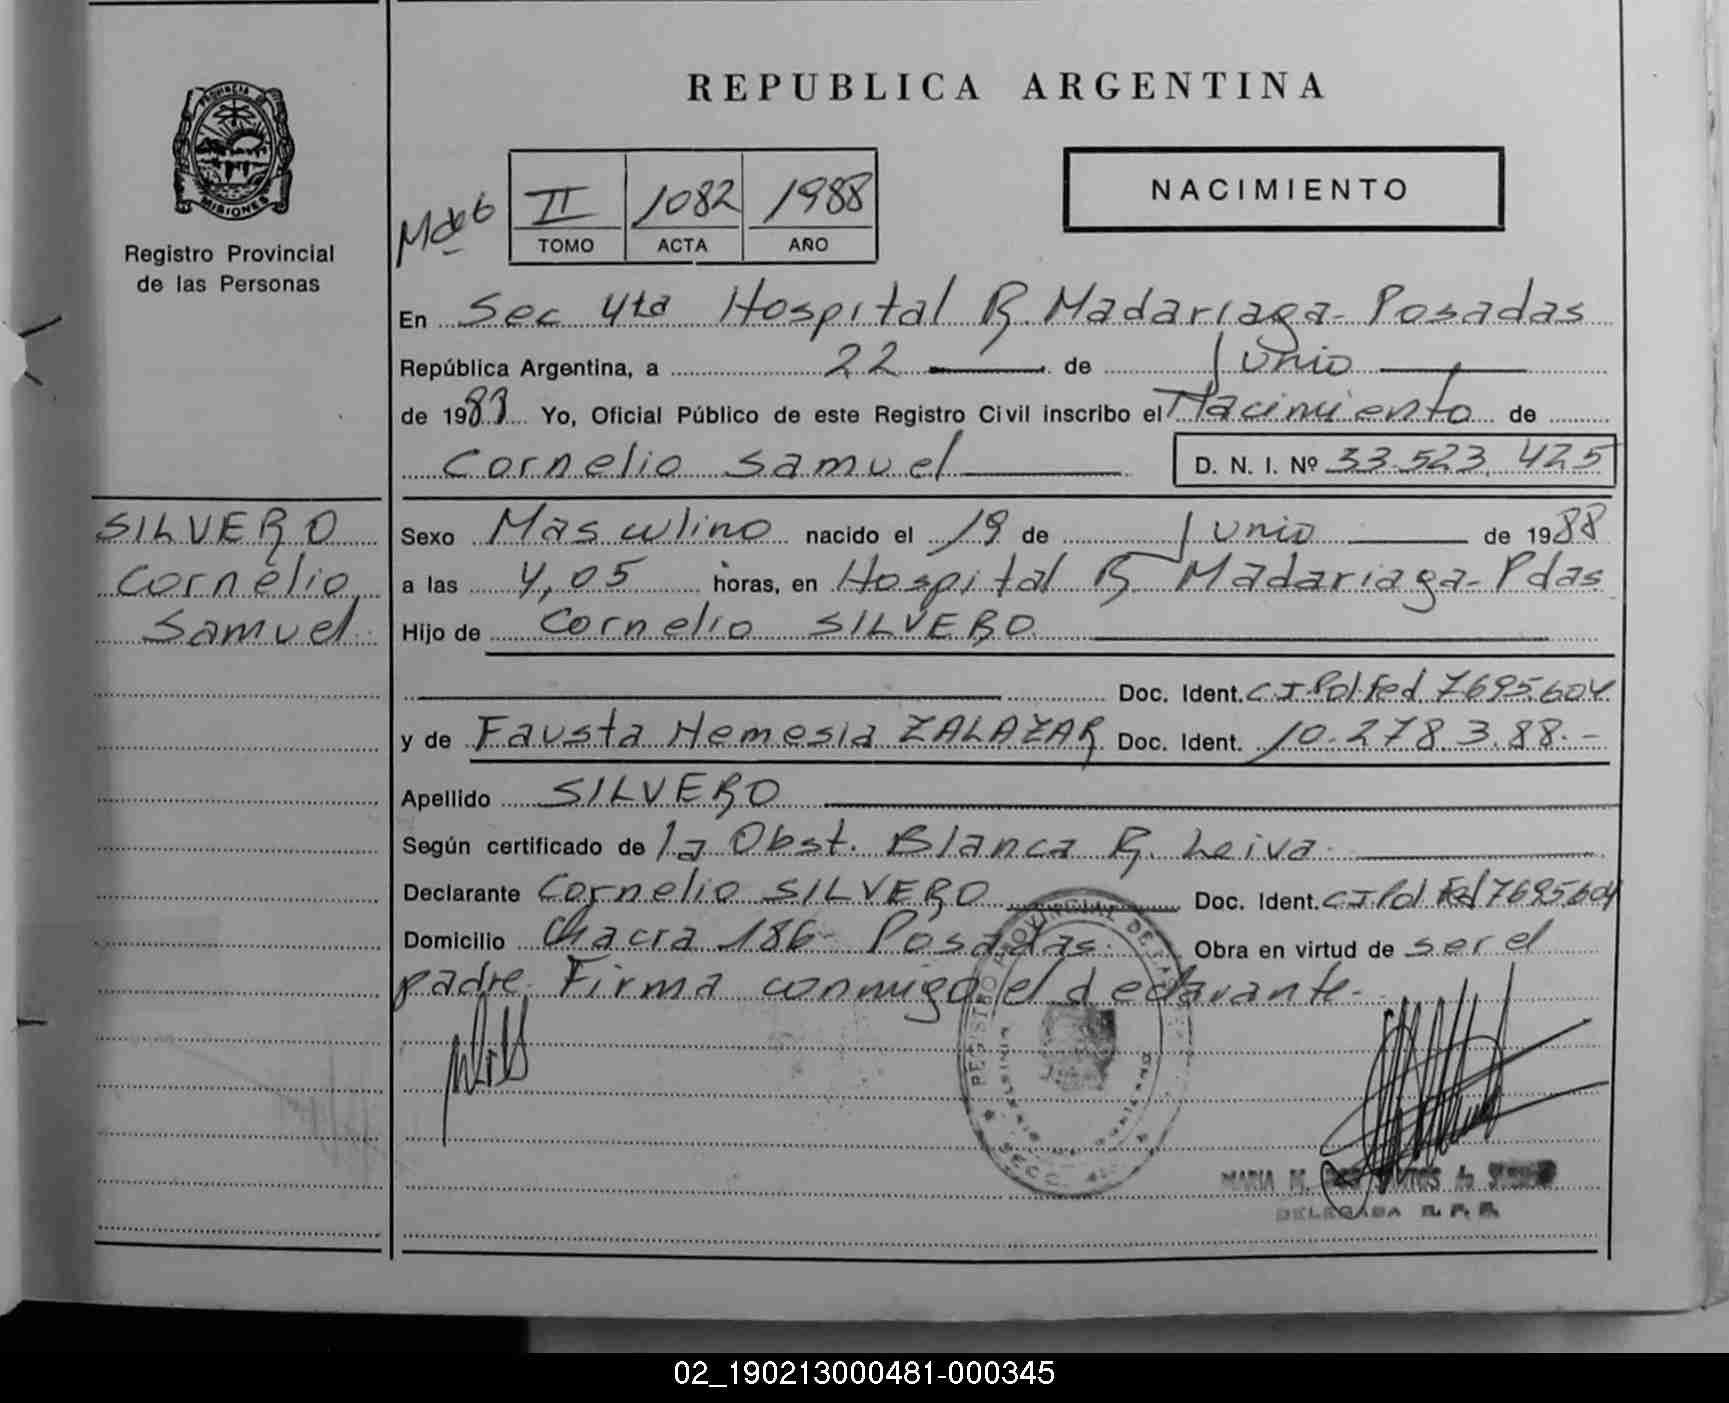 REPUBLICA ARGENTINA
PROVINCIA DE
MISIONES
Registro Provincial
de las Personas
II 1082 1988
TOMO ACTA AÑO
NACIMIENTO
En Sec 4ta Hospital R. Madariaga - Posadas
República Argentina, a 22 de Junio
de 1988 Yo, Oficial Público de este Registro Civil inscribo el Nacimiento de
Cornelio Samuel D. N. I. Nº 33.523.425
SILVERO
Cornelio
Samuel
Sexo Masculino nacido el 19 de Junio de 1988
a las 4,05 horas, en Hospital R Madariaga - Pdas
Hijo de Cornelio SILVERO
Doc. Ident. C.I. Pol. Fed 7695604
y de Fausta Nemesia ZALAZAR Doc. Ident. 10.278388.-
Apellido SILVERO
Según certificado de la Obst. Blanca R. Leiva
Declarante Cornelio SILVERO Doc. Ident. C I Pol Fed 7695604
Domicilio Chacra 186 - Posadas. Obra en virtud de ser el
padre. Firma conmigo el declarante.-
REGISTRO PROVINCIAL DE LAS
SECC. 4
MARIA M.
DELEGADA R. P. P.
02_190213000481-000345